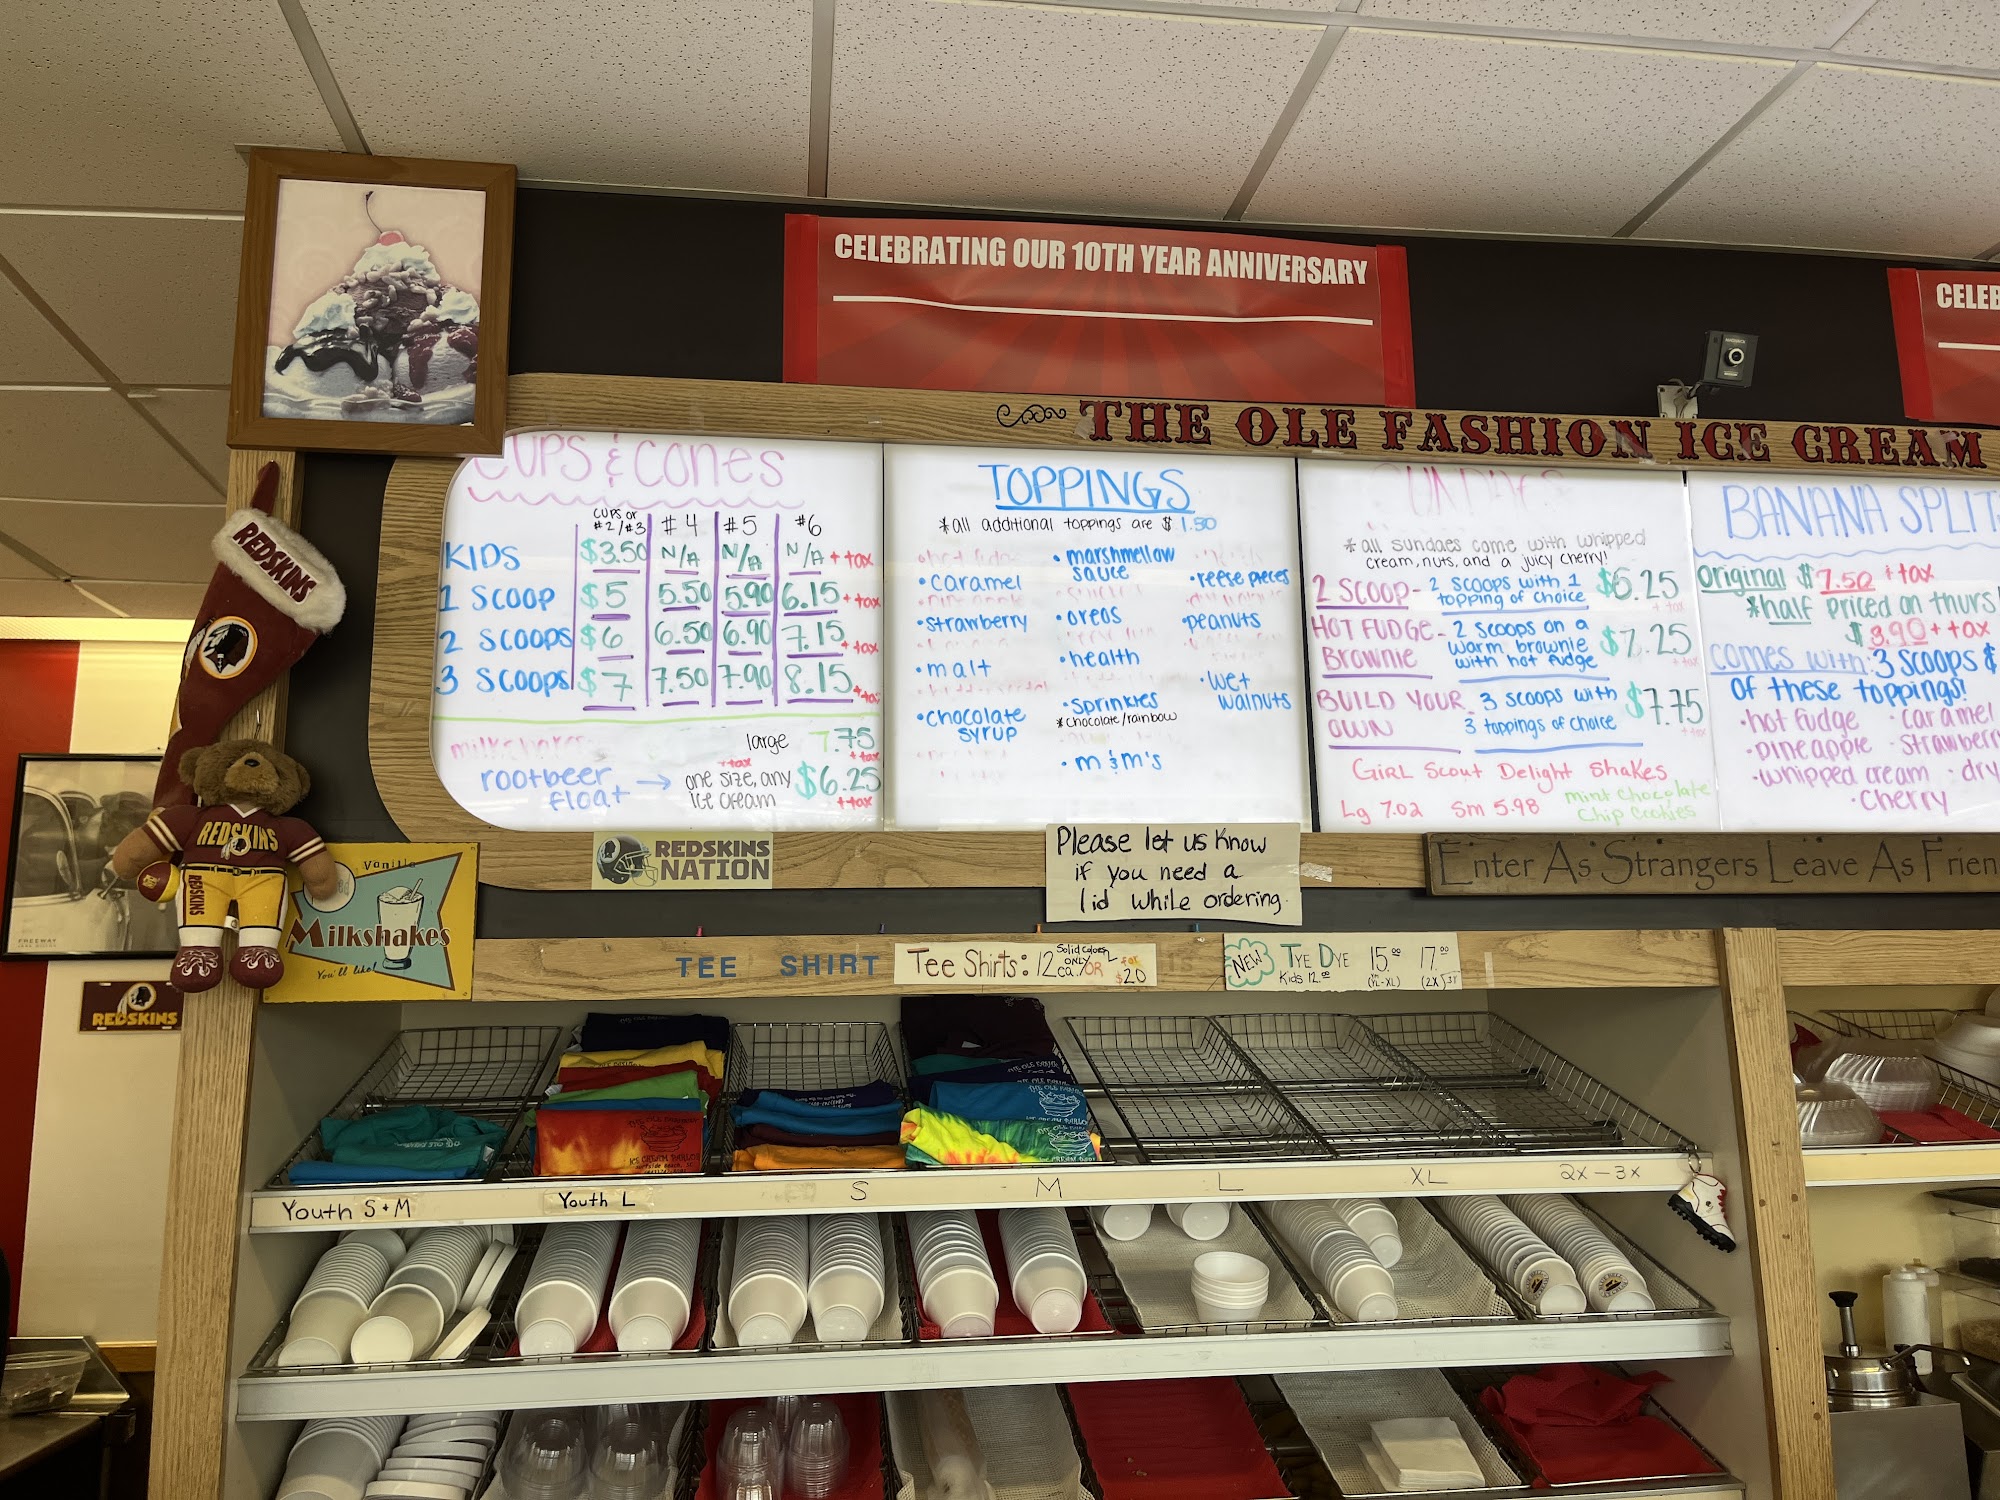 CELEBRATING OUR 10TH YEAR ANNIVERSARY
CELEB
THE OLE FASHION ICE CREAM
CUPS & CONES
CUPS or
#2/#3 #4 #5 #6
KIDS $3.50 N/A N/A N/A + tax
1 SCOOP $5 5.50 5.90 6.15 + tax
2 SCOOPS $6 6.50 6.90 7.15 + tax
3 SCOOPS $7 7.50 7.90 8.15 + tax
milkshakes large 7.75
+ tax + tax
rootbeer float → one size, any ice cream $6.25
+ tax
TOPPINGS
*all additional toppings are $1.50
• hot fudge
• caramel
• strawberry
• malt
• chocolate syrup
• marshmellow sauce
• oreos
• health
• sprinkles
*chocolate/rainbow
• m & m's
• reese pieces
• peanuts
• wet walnuts
SUNDAES
*all sundaes come with whipped
cream, nuts, and a juicy cherry!
2 SCOOP - 2 scoops with 1 topping of choice $6.25
+ tax
HOT FUDGE BROWNIE - 2 scoops on a warm brownie with hot fudge $7.25
+ tax
BUILD YOUR OWN - 3 scoops with 3 toppings of choice $7.75
+ tax
Girl Scout Delight Shakes
Lg 7.02 Sm 5.98 mint chocolate
chip cookies
BANANA SPLIT
original $7.50 + tax
*half priced on thurs
$3.90 + tax
comes with: 3 scoops &
of these toppings!
• hot fudge • caramel
• pineapple • strawberry
• whipped cream • dry
• cherry
REDSKINS
REDSKINS
REDSKINS
Vanilla
Milkshakes
You'll like!
FREEWAY
REDSKINS
REDSKINS
NATION
Please let us know
if you need a
lid while ordering.
Enter As Strangers Leave As Frien
TEE SHIRT
Tee Shirts: 12 ea. OR 2 for $20
Solid colors ONLY
NEW TYE DYE 15.00 17.00
Kids 12.00 (YL-XL) (2X)
THE OLE FASHION
ICE CREAM PARLOR
Youth S + M
Youth L
S
M
L
XL
2X - 3X